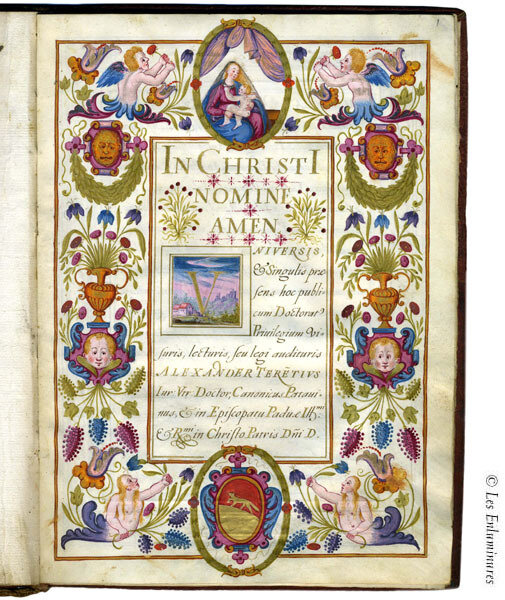 1
IN CHRISTI
NOMINE
AMEN.
VNIVERSIS,
& Singulis præ
sens hoc publi
cum Doctorat9
Privilegium vi-
suris, lecturis, seu legi audituris
ALEXANDER TERĒTIVS
Iur. Vtr. Doctor, Canonicus Patavi-
nus, & in Episcopatu Paduæ Ill.mi
& R.mi in Christo Patris Dn̄i D.
© Les Enluminures